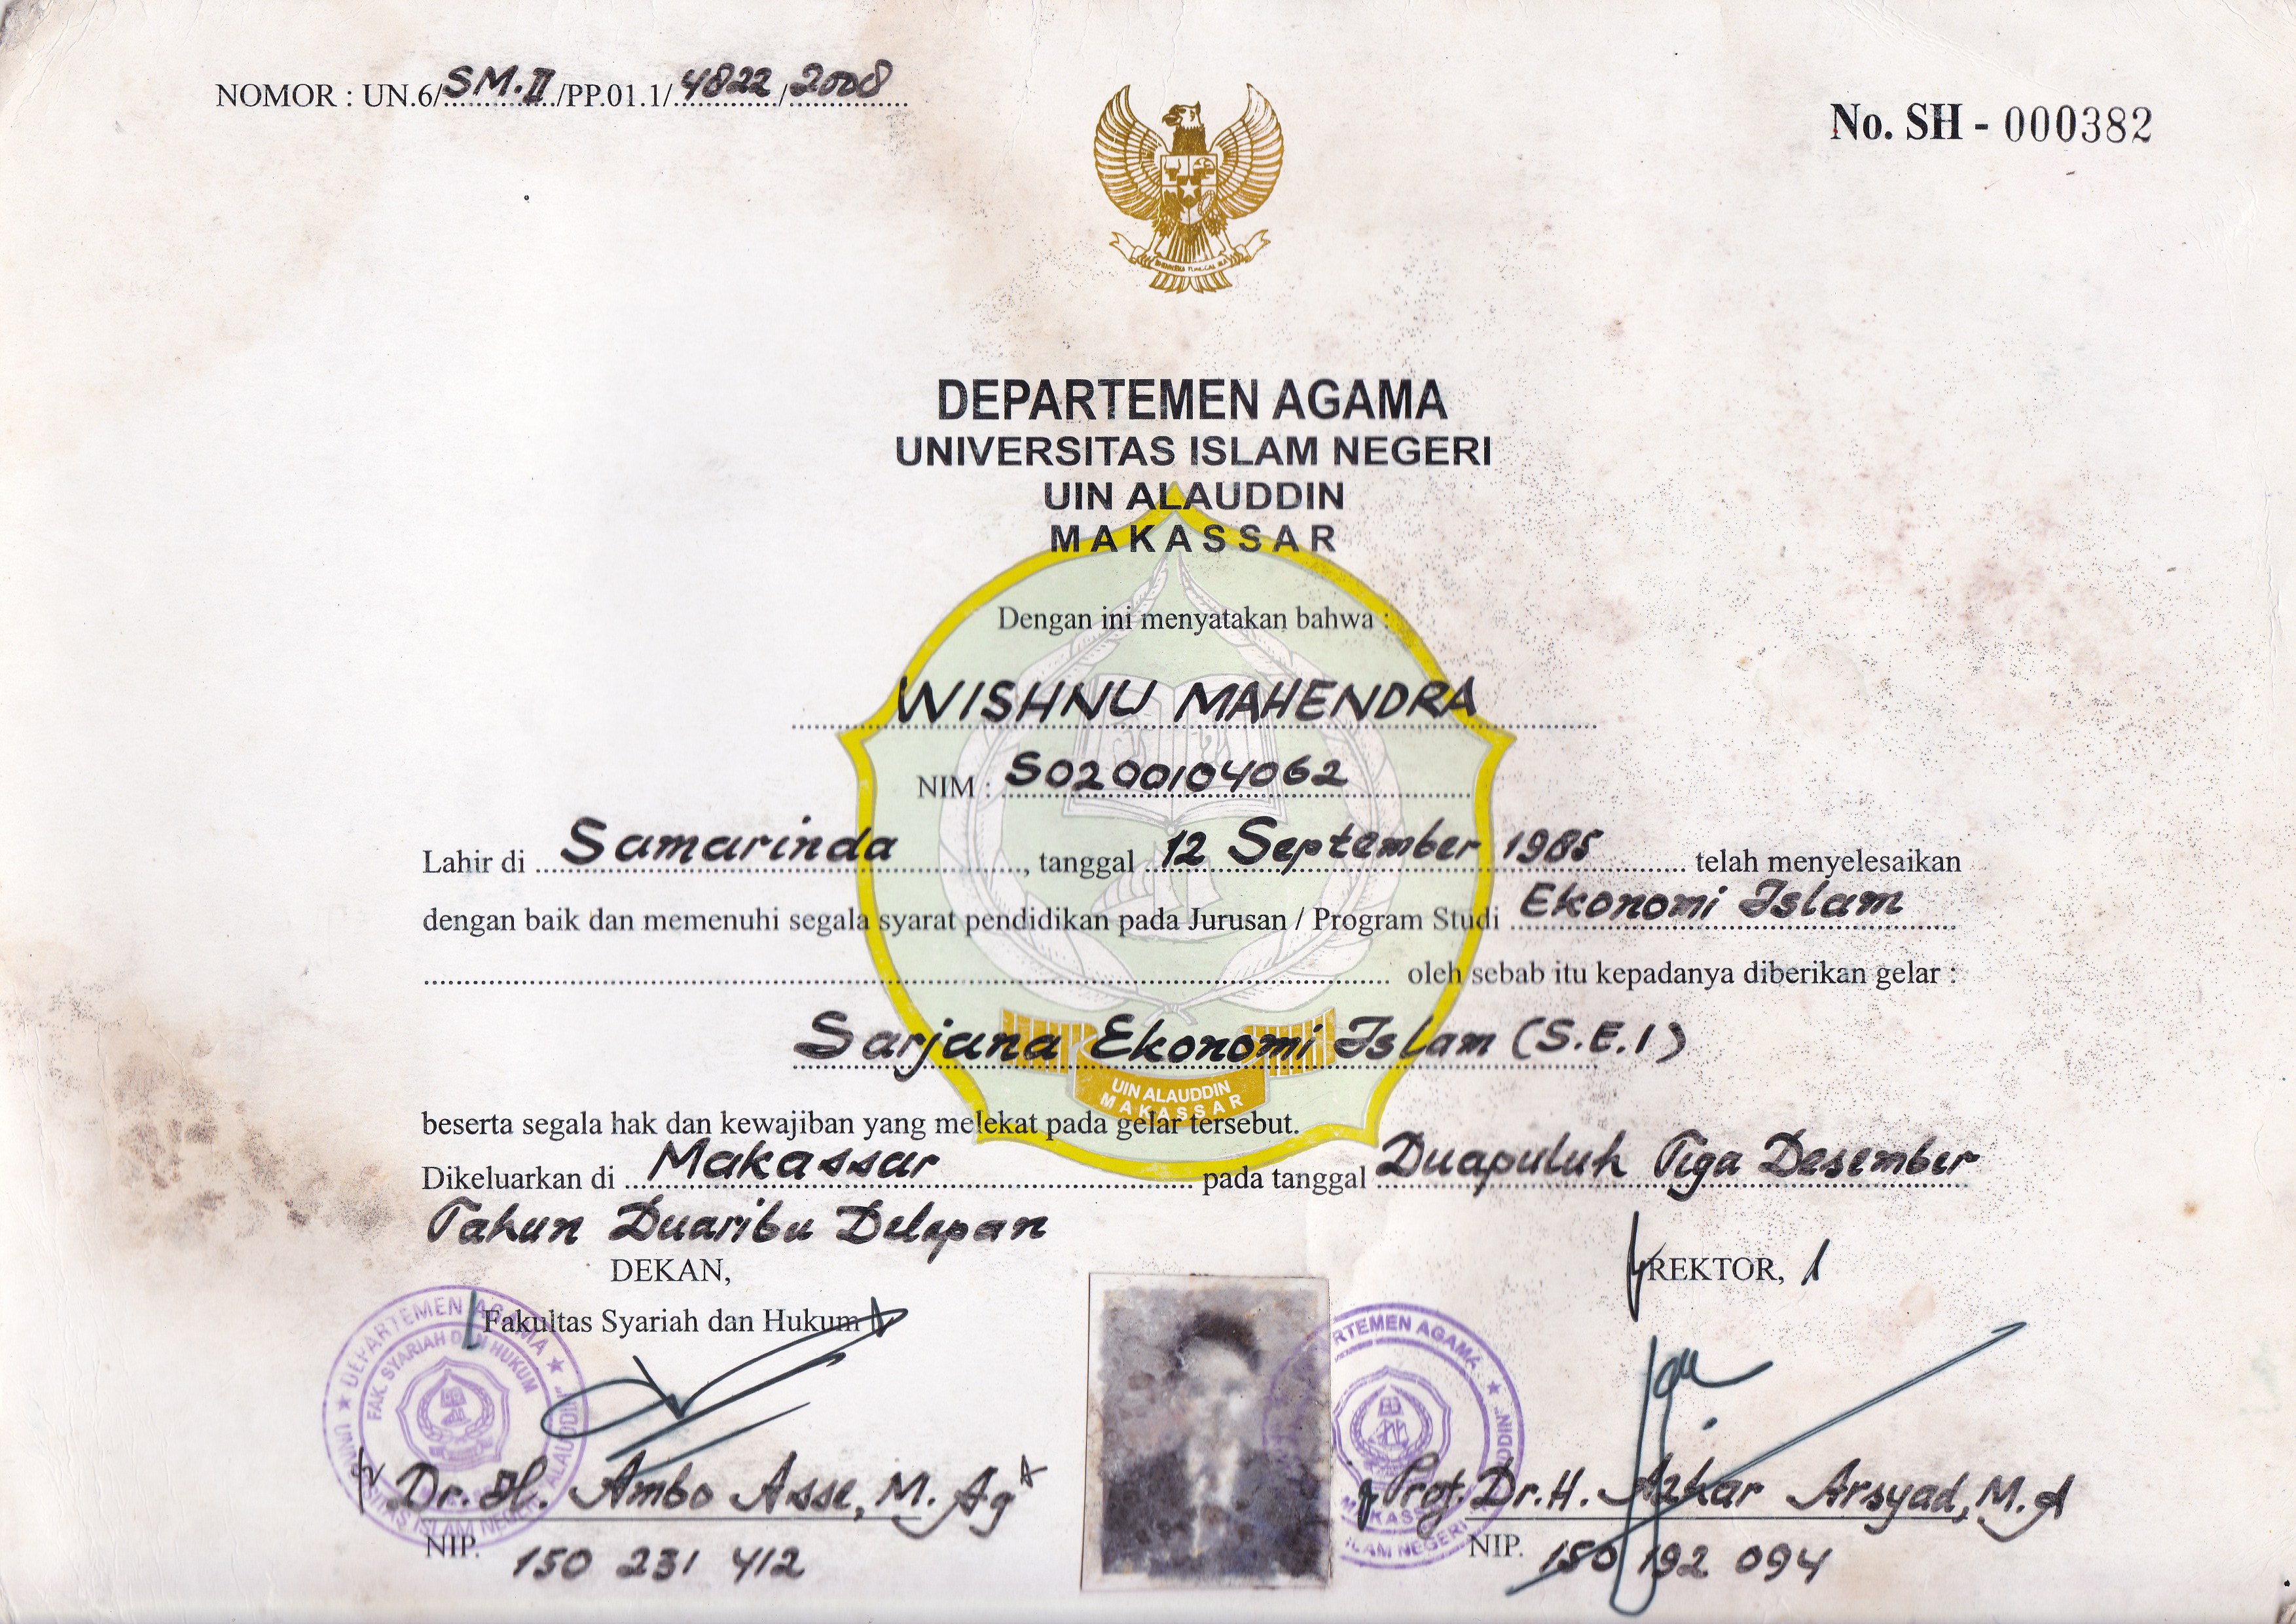 NOMOR : UN.6/SM.II/PP.01.1/4822/2008
No. SH - 000382
BHINNEKA TUNGGAL IKA
DEPARTEMEN AGAMA
UNIVERSITAS ISLAM NEGERI
UIN ALAUDDIN
MAKASSAR
Dengan ini menyatakan bahwa :
WISHNU MAHENDRA
NIM : S0200104062
Lahir di Samarinda, tanggal 12 September 1985 telah menyelesaikan
dengan baik dan memenuhi segala syarat pendidikan pada Jurusan / Program Studi Ekonomi Islam
oleh sebab itu kepadanya diberikan gelar :
Sarjana Ekonomi Islam (S.E.I)
UIN ALAUDDIN
MAKASSAR
beserta segala hak dan kewajiban yang melekat pada gelar tersebut.
Dikeluarkan di Makassar pada tanggal Duapuluh Tiga Desember
Tahun Duaribu Delapan
DEKAN,
Fakultas Syariah dan Hukum
REKTOR,
DEPARTEMEN AGAMA
FAK. SYARIAH DAN HUKUM
RTEMEN AGAMA
MAKASSAR
Dr. H. Ambo Asse, M. Ag
Prof. Dr. H. Azhar Arsyad, M.A
NIP. 150 231 412
NIP. 150 192 094